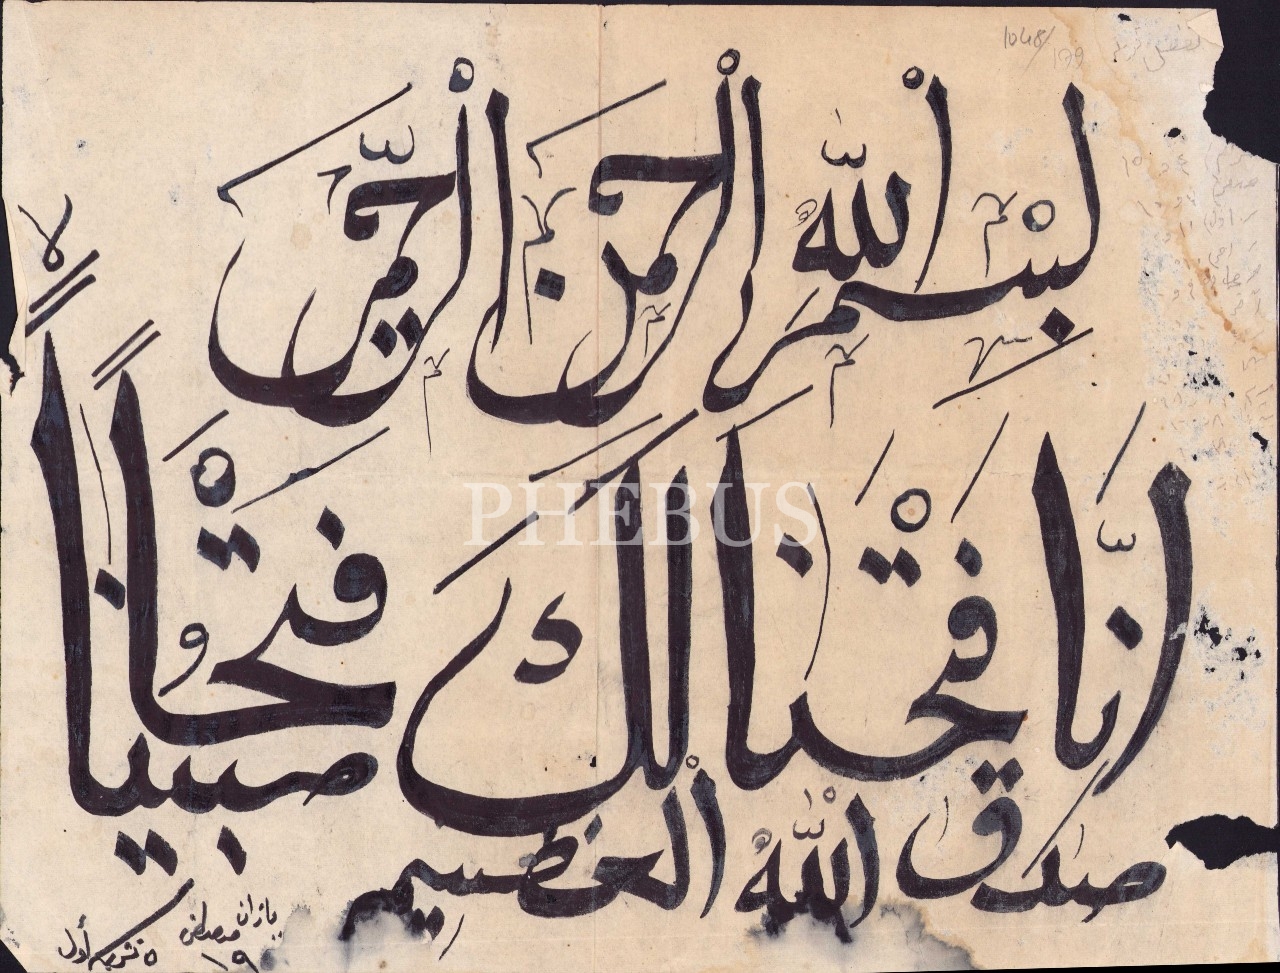 1048/199
بِسْمِ اللّٰهِ الرَّحْمٰنِ الرَّحِيمِ
اِنَّا فَتَحْنَا لَكَ فَتْحًا مُبِينًا
صدق اللّٰهُ العظيم
يازان مصطفى
١٩
٥ تشرين أول
PHEBUS